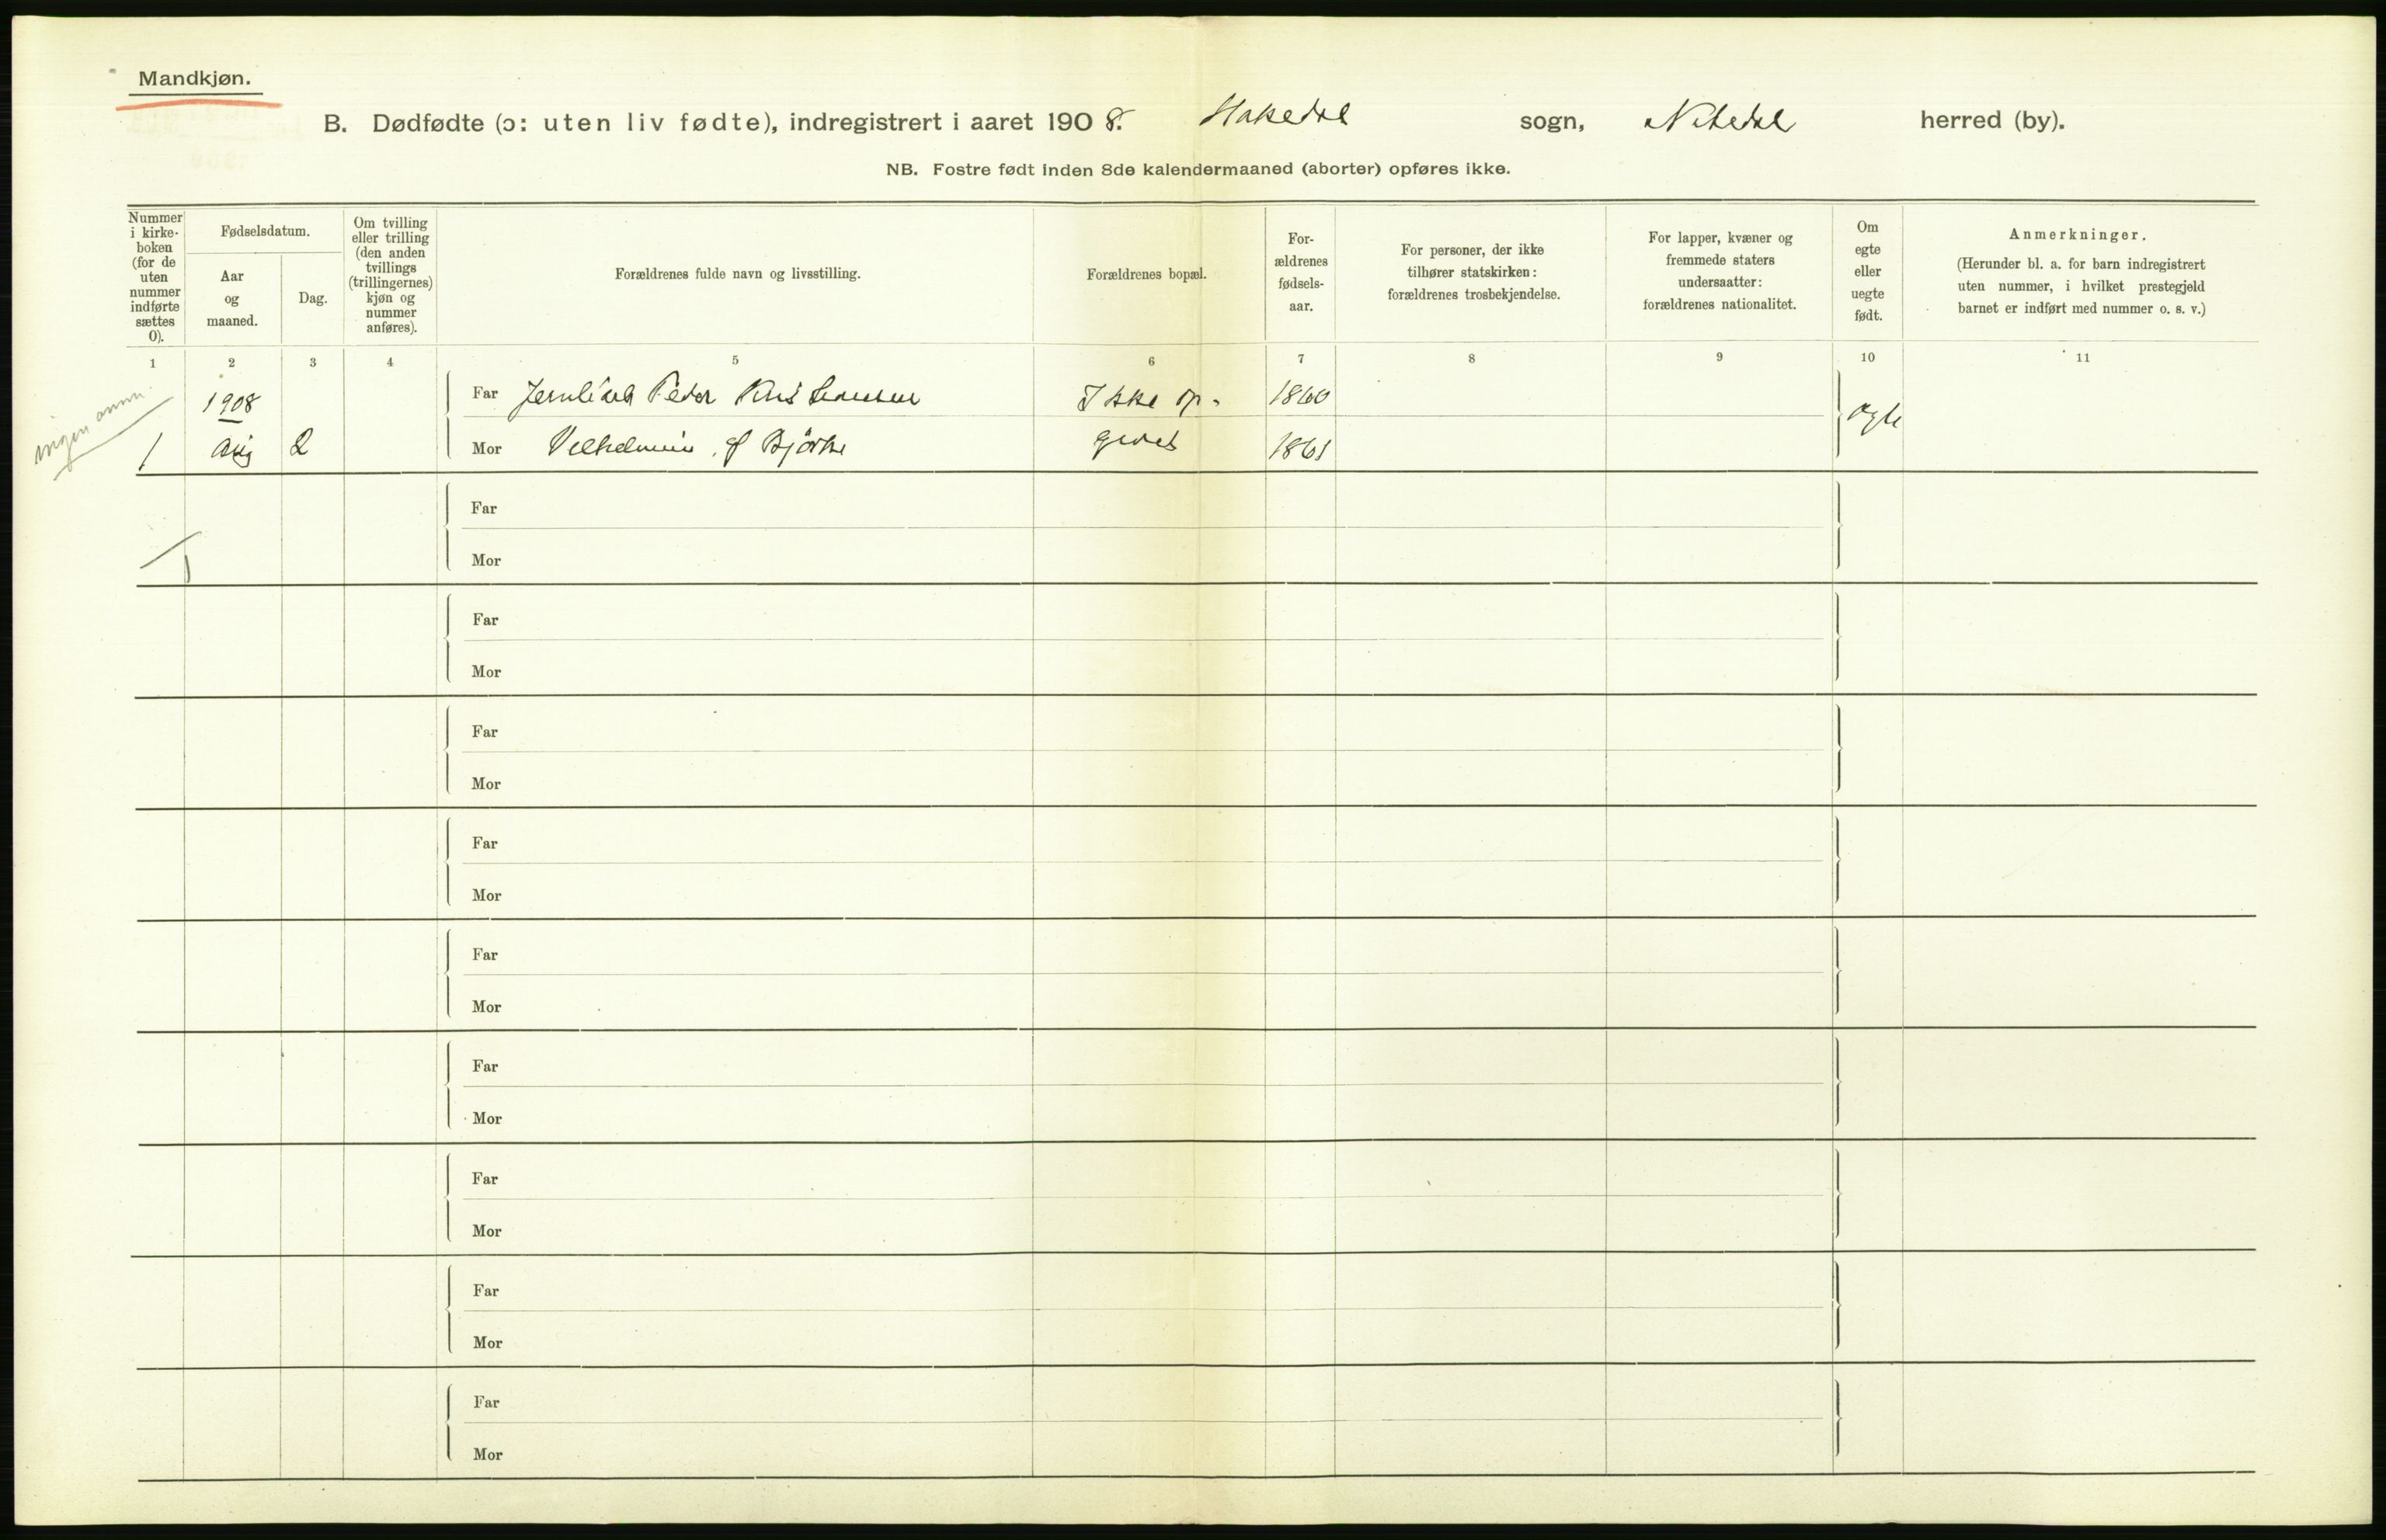 Mandkjøn.
B. Dødfødte (ɔ: uten liv fødte), indregistrert i aaret 1908. Hakedal sogn, Nitedal herred (by).
NB. Fostre født inden 8de kalendermaaned (aborter) opføres ikke.
Nummer i kirke-boken (for de uten nummer indførte sættes 0).
Fødselsdatum.
Aar og maaned.
Dag.
Om tvilling eller trilling (den anden tvillings (trillingernes) kjøn og nummer anføres).
Forældrenes fulde navn og livsstilling.
Forældrenes bopæl.
For-ældrenes fødsels-aar.
For personer, der ikke tilhører statskirken: forældrenes trosbekjendelse.
For lapper, kvæner og fremmede staters undersaatter: forældrenes nationalitet.
Om egte eller uegte født.
Anmerkninger.
(Herunder bl. a. for barn indregistrert uten nummer, i hvilket prestegjeld barnet er indført med nummer o. s. v.)
1 2 3 4 5 6 7 8 9 10 11
1908 Far Peder Kristensen Ikke op- 1860 egte
1 Aug 2 Mor Vilhelmine f Björke givet 1861
Far
Mor
Far
Mor
Far
Mor
Far
Mor
Far
Mor
Far
Mor
Far
Mor
Far
Mor
Far
Mor